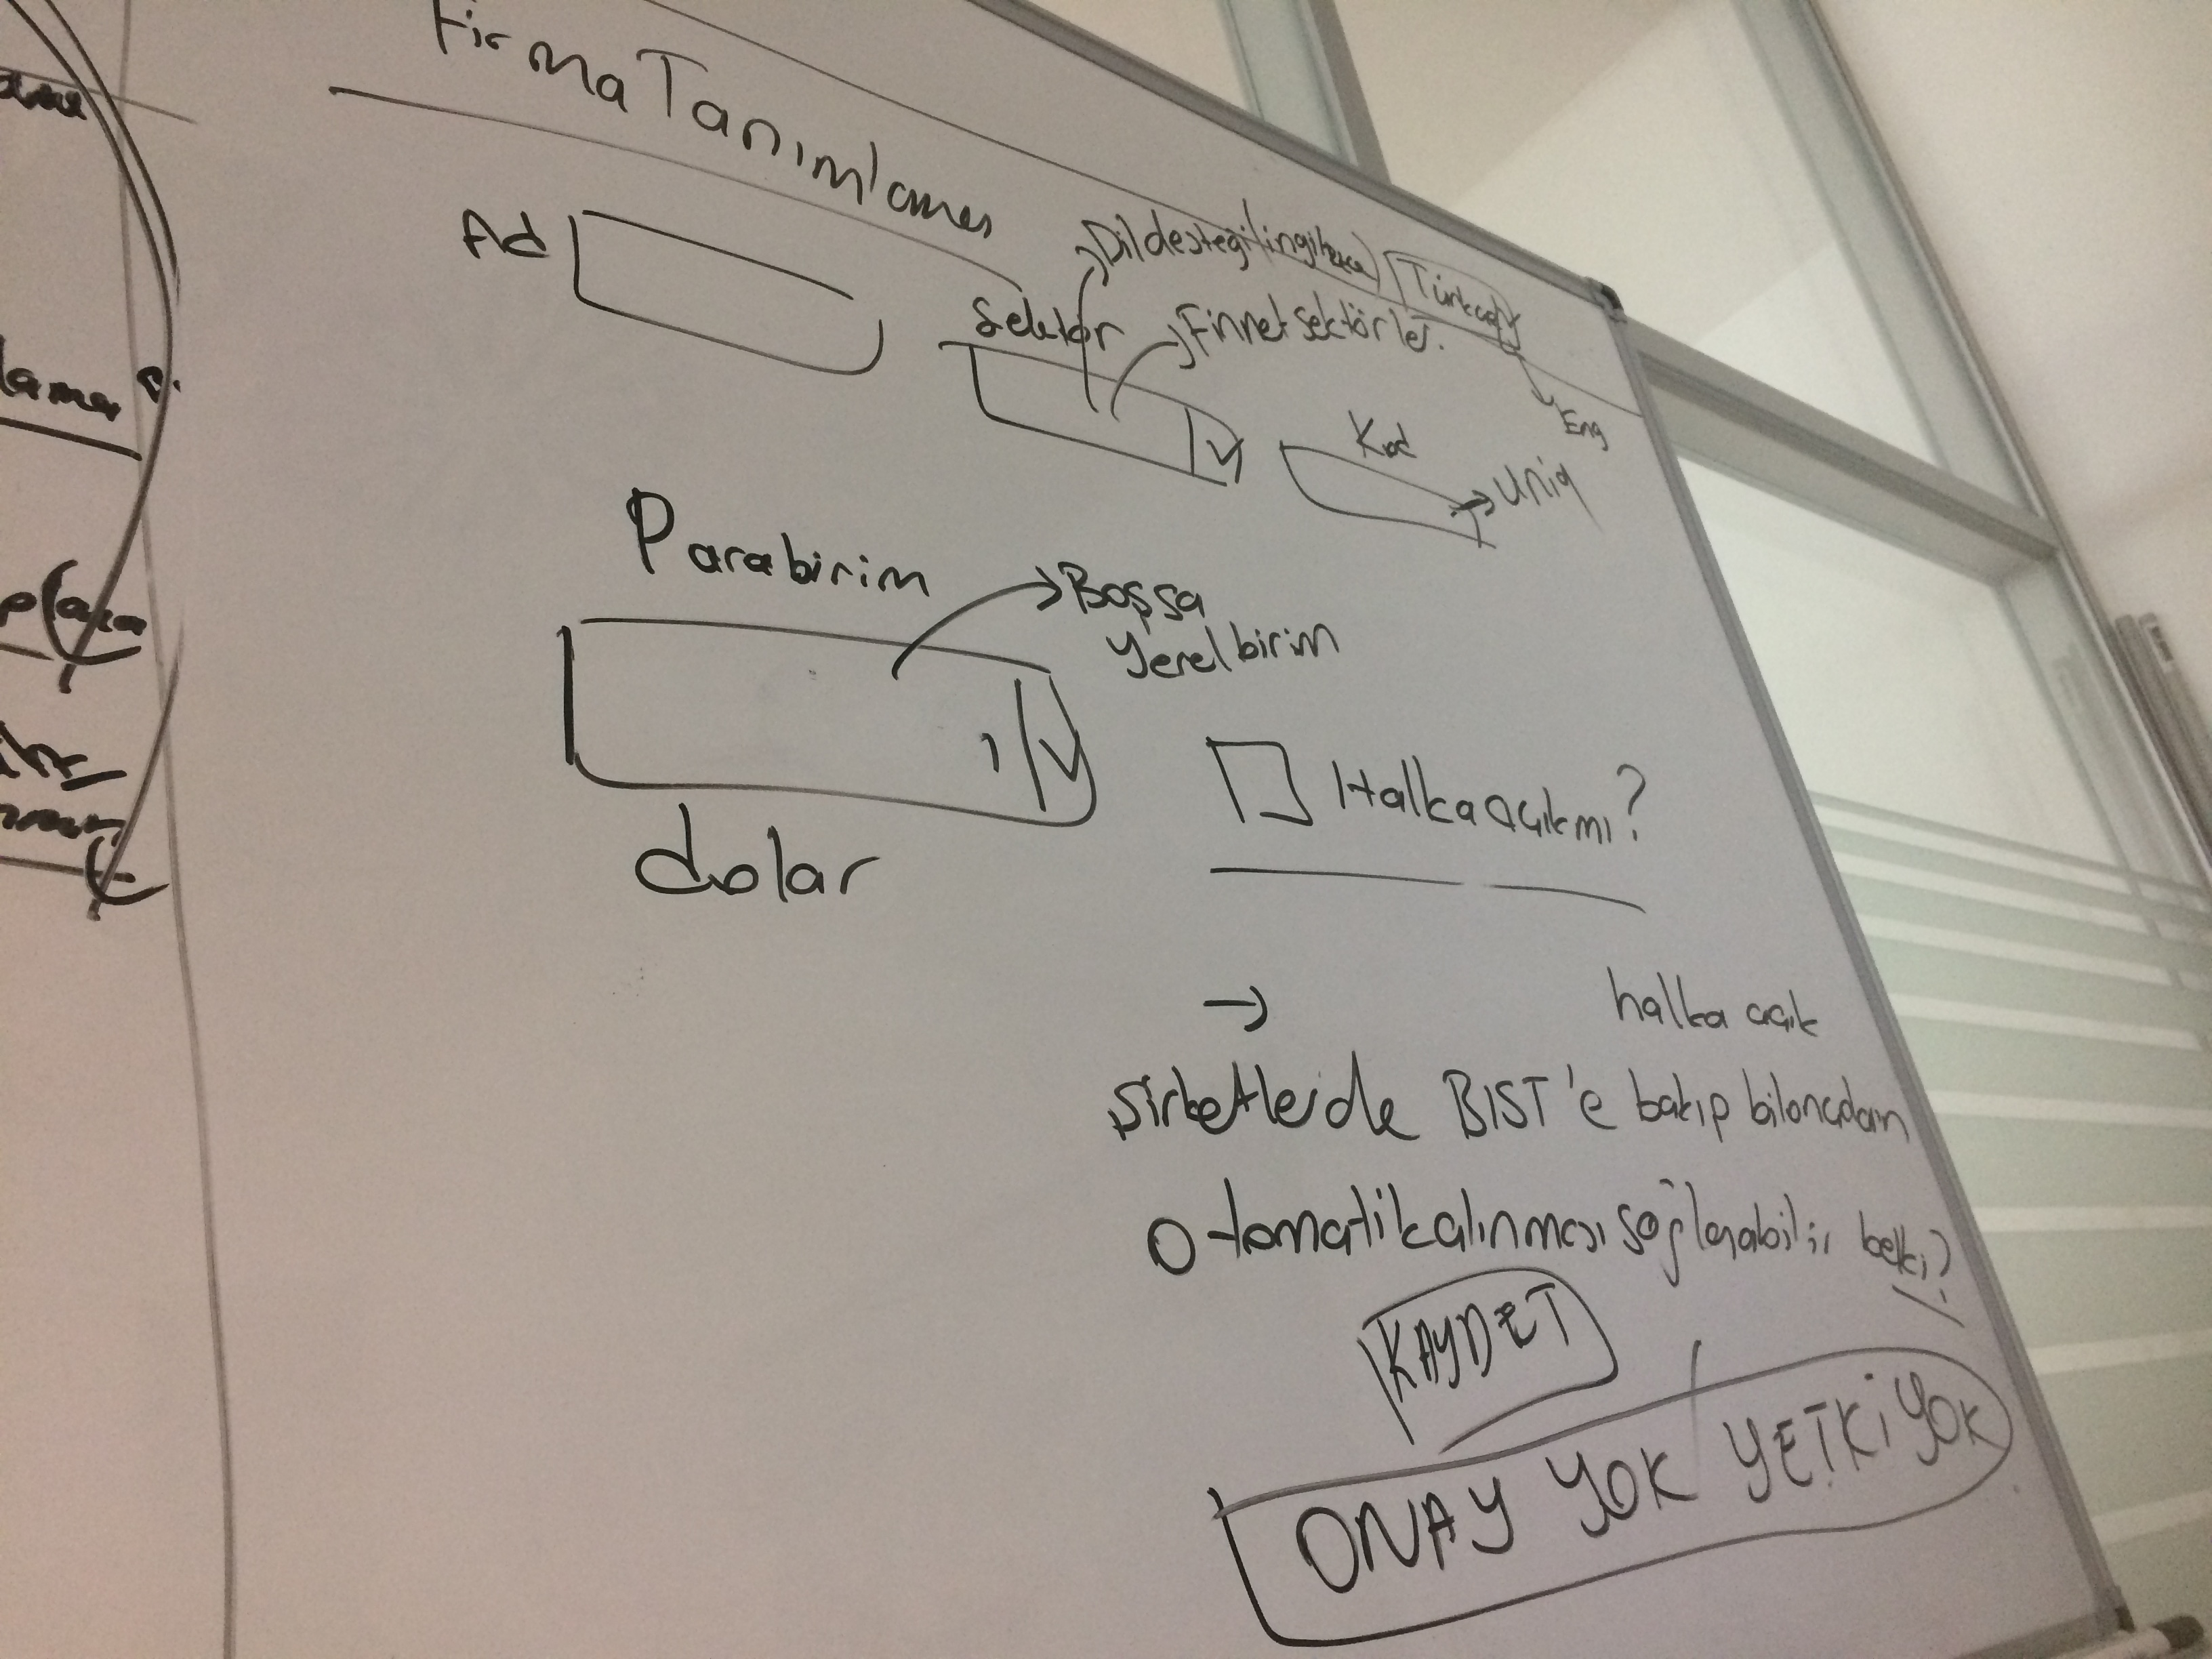 Firma Tanımlaması
Ad
Dil desteği (ingilizce) Türkçe
Sektör
Finnet sektörler.
Eng
Kod
uniq
Parabirim
Boşsa
Yerel birim
Halka açık mı?
dolar
halka açık
şirketlerde BIST'e bakıp bilançodan
otomatik alınması sağlanabilir belki?
KAYDET
ONAY YOK / YETKİ YOK